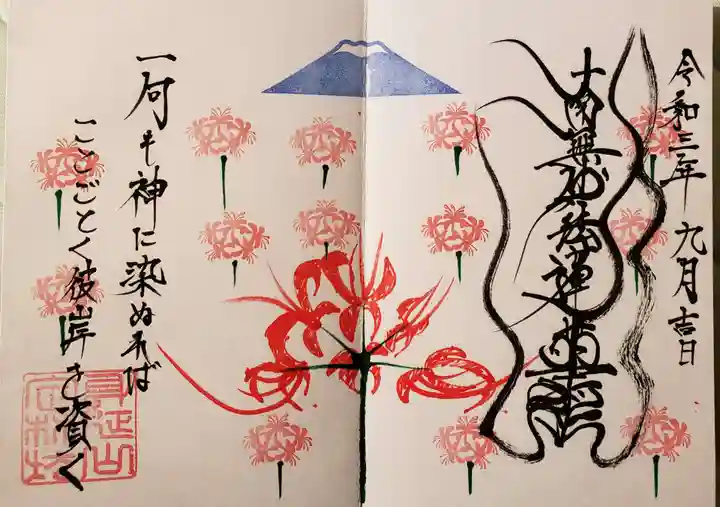 令和三年 九月吉日
南無妙法蓮華経
一句も神に染ぬれば
ことごとく彼岸を資く
身延山
定林坊